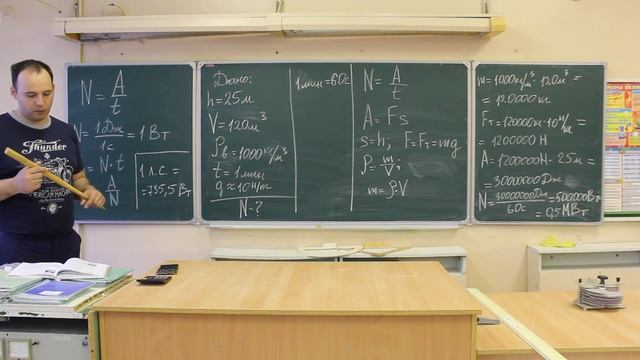 N = A/t
N = 1Дж/1с = 1 Вт
= N · t
A/N
1 л.с. =
= 735,5 Вт
Дано:
h = 25м
V = 120м³
ρв = 1000кг/м³
t = 1мин
g ≈ 10Н/кг
N - ?
1мин = 60с
N = A/t
A = Fs
s = h; F = Fт = mg
ρ = m/V;
m = ρ·V
m = 1000кг/м³ · 120м³ =
= 120000кг
Fт = 120000кг · 10Н/кг =
= 1200000 Н
A = 1200000Н · 25м =
= 30000000Дж
N = 30000000Дж/60с = 500000Вт
= 0,5МВт
Thunder